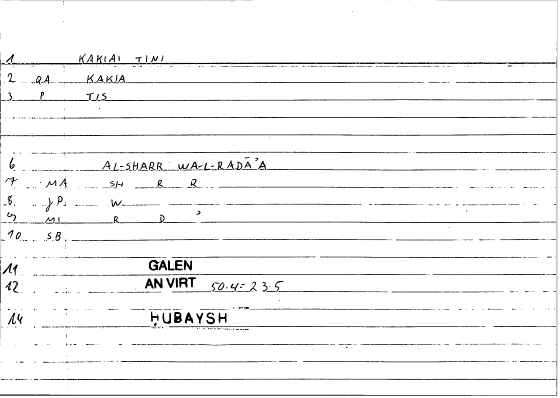 1 KAKIAI TINI
2 QA KAKIA
3 P TIS
6 AL-SHARR WA-L-RADĀʾA
7 MA SH R R
8. JP. W
9 MI R D ʾ
10 SB.
11 GALEN
12 AN VIRT 50.4 = 23.5
14 ḤUBAYSH